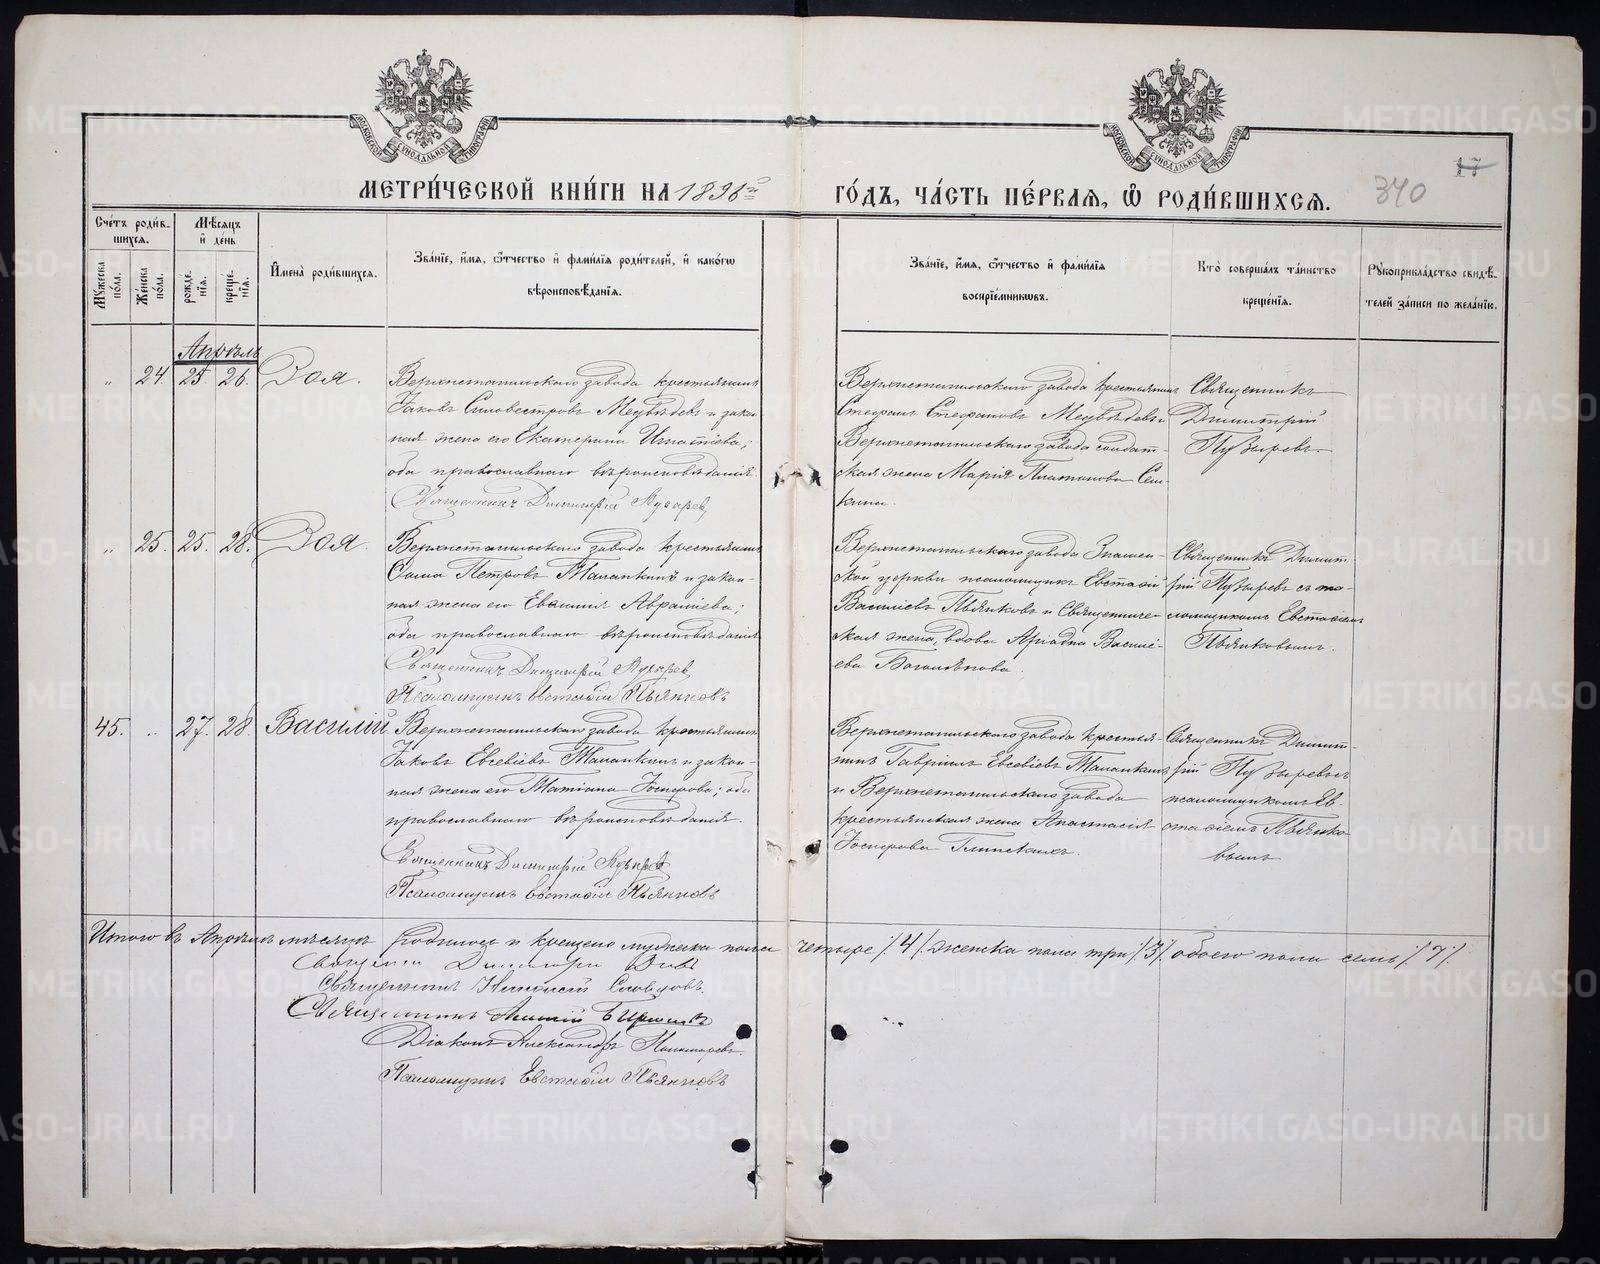 МОСКОВСКОЙ СѴНОДАЛЬНОЙ ТИПОГРАФІИ
МОСКОВСКОЙ СѴНОДАЛЬНОЙ ТИПОГРАФІИ
17
МЕТРИ́ЧЕСКОЙ КНИ́ГИ НА 1896й ГО́ДЪ, ЧА́СТЬ ПЕ́РВАЯ, Ѡ РОДИ́ВШИХСЯ. 340
Сче́тъ роди́в-
шихся.
Мѣ́сяцъ
и҆ де́нь
Мꙋ́жеска по́ла.
Же́нска по́ла.
рожде́нїѧ.
креще́нїѧ.
И҆мена̀ роди́вшихся.
Зва́нїе, и҆́мя, ѻ҆́тчество и҆ фами́лїя роди́телей, и҆ како́гѡ
вѣроисповѣ́данїя.
Зва́нїе, и҆́мя, ѻ҆́тчество и҆ фами́лїя
воспрїе́мникѡвъ.
Кто̀ соверша́лъ та́инство
креще́нїя.
Рꙋкоприкла́дство свидѣ́-
телей за́писи по жела́нїю.
Апрѣль
„ 24. 25. 26. Зоя.
Верхнетагильскаго завода крестьянинъ
Іаковъ Силовестровъ Медвѣдевъ и закон
ная жена его Екатерина Игнатіева;
оба православнаго вѣроисповѣданія.
Священникъ Димитрій Пузырев
Верхнетагильскаго завода крестьянинъ
Стефанъ Стефановъ Медвѣдевъ и
Верхнетагильскаго завода солдат-
ская жена Марія Платонова Сем-
кина.
Священникъ
Димитрій
Пузыревъ.
„ 25. 25. 28. Зоя.
Верхнетагильскаго завода крестьянинъ
Савва Петровъ Малапкинъ и закон-
ная жена его Евѳимія Аврамиева;
оба православнаго вѣроисповѣданія
Священникъ Димитрій Пузырев
Псаломщикъ Евстафій Пьянковъ
Верхнетагильскаго завода Знамен-
ской церкви псаломщикъ Евстафій
Василіевъ Пьянковъ и Священниче-
ская жена, вдова Ариадна Василі-
ева Боголѣпова.
Священникъ Димит-
рій Пузыревъ съ пса-
ломщикомъ Евстафіемъ
Пьянковымъ.
45. „ 27. 28. Василій
Верхнетагильскаго завода крестьянинъ
Іаковъ Евсевіевъ Малапкинъ и закон-
ная жена его Татіана Іосифова; оба
православнаго вѣроисповѣданія.
Священникъ Димитрій Пузырев
Псаломщикъ Евстафій Пьянковъ
Верхнетагильскаго завода крестья-
нинъ Гавріилъ Евсевіевъ Малапкинъ
и Верхнетагильскаго завода
крестьянская жена Анастасія
Іосифова Глинскихъ.
Священникъ Димит-
рій Пузыревъ съ
псаломщикомъ Ев-
стафіемъ Пьянко-
вымъ
Итого въ Апрѣлѣ мѣсяцѣ родилось и крещено мужеска пола четыре /:4:/ женска пола три /:3:/ обоего пола семь /:7:/.
Священникъ Димитрій
Священникъ Николай Словцовъ.
Священникъ
Діаконъ Александръ Пономаревъ.
Псаломщикъ Евстафій Пьянковъ
METRIKI.GASO-URAL.RU